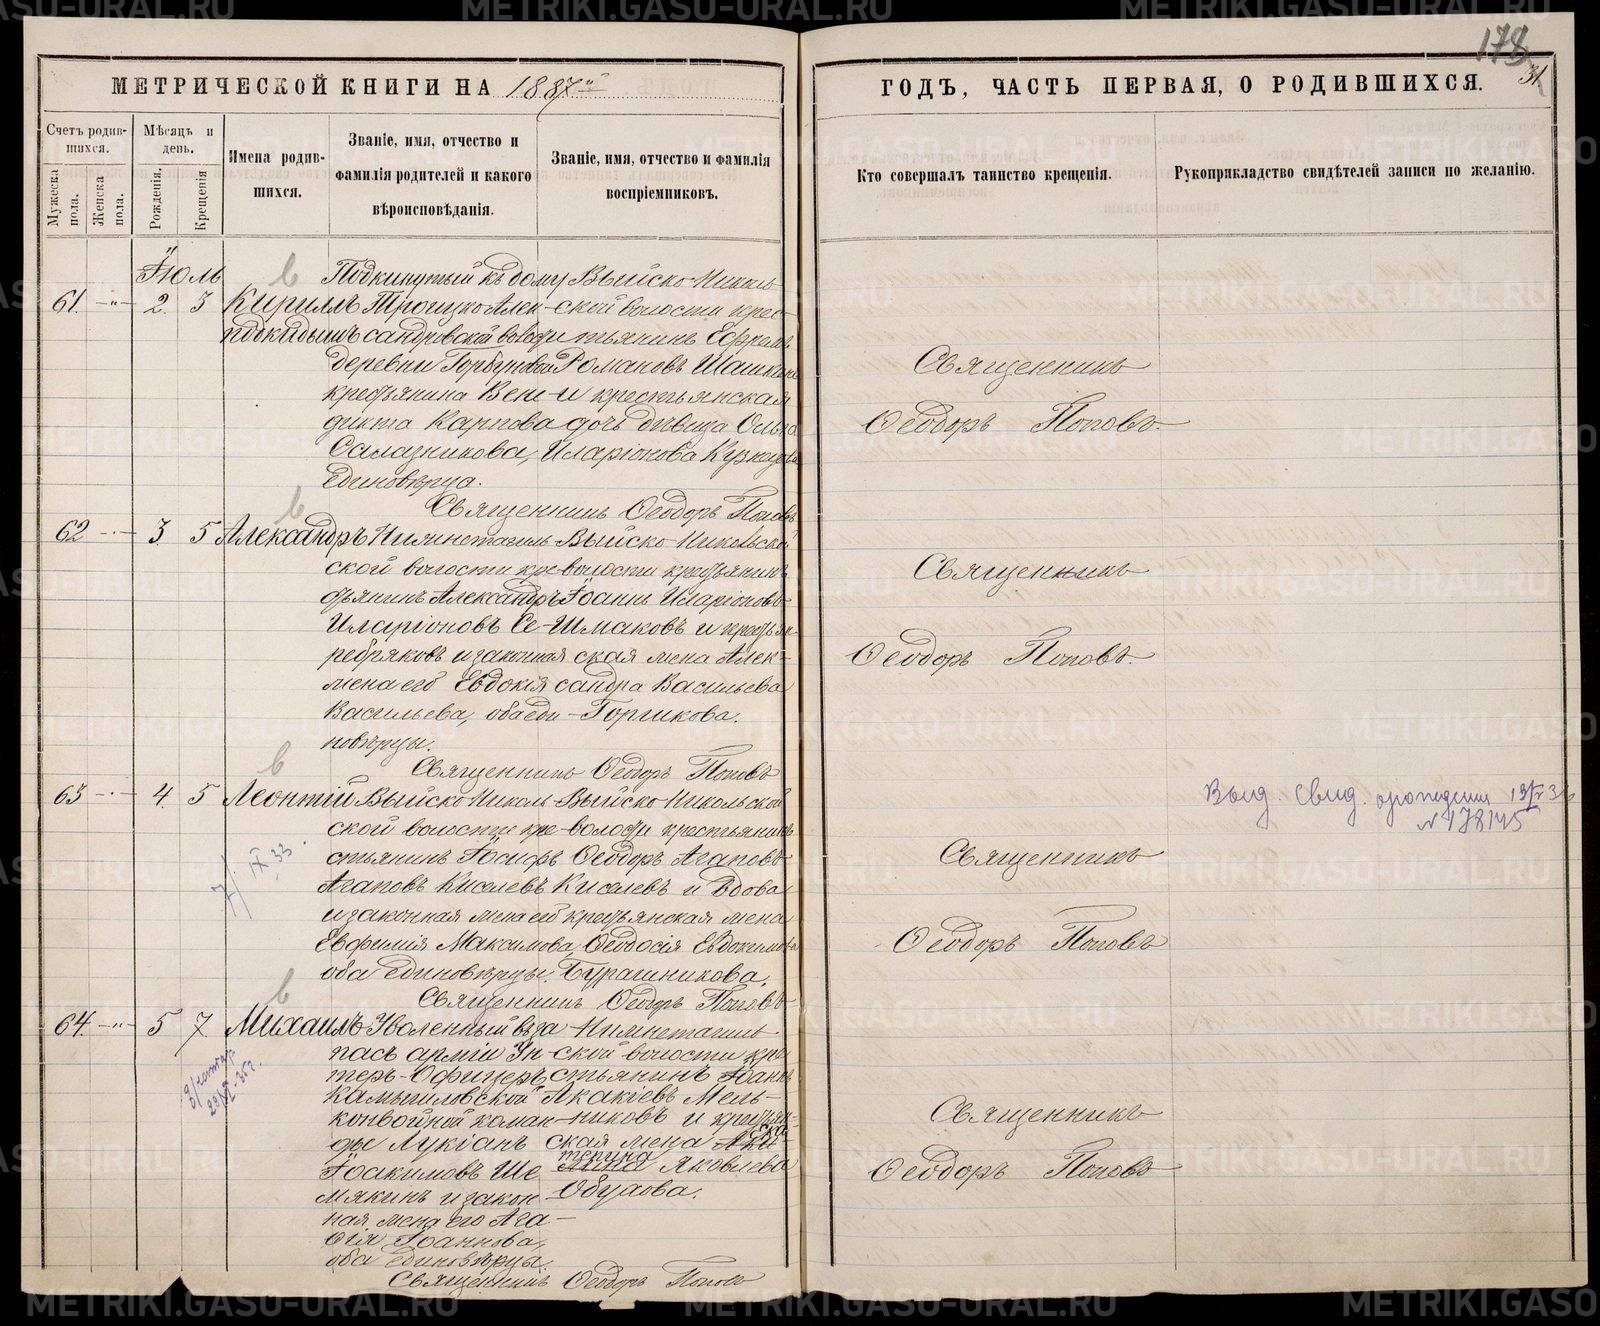 178
31.
МЕТРИЧЕСКОЙ КНИГИ НА 1887й
ГОДЪ, ЧАСТЬ ПЕРВАЯ, О РОДИВШИХСЯ.
Счетъ родив-
шихся.
Мужеска пола.
Женска пола.
Мѣсяцъ и
день.
Рожденія.
Крещенія
Имена родив-
шихся.
Званіе, имя, отчество и
фамилія родителей и какого
вѣроисповѣданія.
Званіе, имя, отчество и фамилія
воспріемниковъ.
Кто совершалъ таинство крещенія.
Рукоприкладство свидѣтелей записи по желанію.
Іюль
61. -"- 2. 3
Кириллъ
подкидышъ
Подкинутый къ дому
Троицко-Алек-
сандровской волости
деревни Горбуновой
крестьянина Вене-
дикта Карпова
Салазникова,
Единовѣрца.
Выйско-Николь-
ской волости крес-
тьянинъ Ефремъ
Романовъ Шашкинъ
и крестьянская
дочь дѣвица Ольга
Иларіонова Кузнецова
Священникъ Ѳеодоръ Поповъ
Священникъ
Ѳеодоръ Поповъ.
62 -"- 3. 5
Александръ
Нижнетагиль-
ской волости кре-
стьянинъ Александръ
Иларіоновъ Се-
ребряковъ и законная
жена его Евдокія
Васильева, оба еди-
новѣрцы.
Выйско-Никольской
волости крестьянинъ
Іоаннъ Иларіоновъ
Шмаковъ и крестьян-
ская жена Алек-
сандра Васильева
Горчикова.
Священникъ Ѳеодоръ Поповъ
Священникъ
Ѳеодоръ Поповъ.
63 -"- 4. 5
Леонтій
Выйско-Николь-
ской волости кре-
стьянинъ Іосифъ
Агаповъ Киселевъ
и законная жена его
Евфимія Максимова,
оба единовѣрцы.
Выйско-Никольской
волости крестьянинъ
Ѳеодоръ Агаповъ
Киселевъ и вдова
крестьянская жена
Ѳеодосія Евдокимова
Бурашникова.
Священникъ Ѳеодоръ Поповъ
Священникъ
Ѳеодоръ Поповъ
7/IX 33.
Выд. Свид. о рождении
№ 178145
64. -"- 5 7
Михаилъ
Уволенный въ за-
пасъ арміи Ун-
теръ-Офицеръ
Камышловской
конвойной коман-
ды Лукіанъ
Іоакимовъ Ше-
мякинъ и закон-
ная жена его Ага-
ѳія Іоаннова,
оба единовѣрцы.
Нижнетагиль-
ской волости кре-
стьянинъ Іоаннъ
Акакіевъ Мель-
никовъ и крестьян-
ская жена Ека-
терина Яковлева
Обухова.
Священникъ Ѳеодоръ Поповъ
Священникъ
Ѳеодоръ Поповъ
METRIKI.GASO-URAL.RU